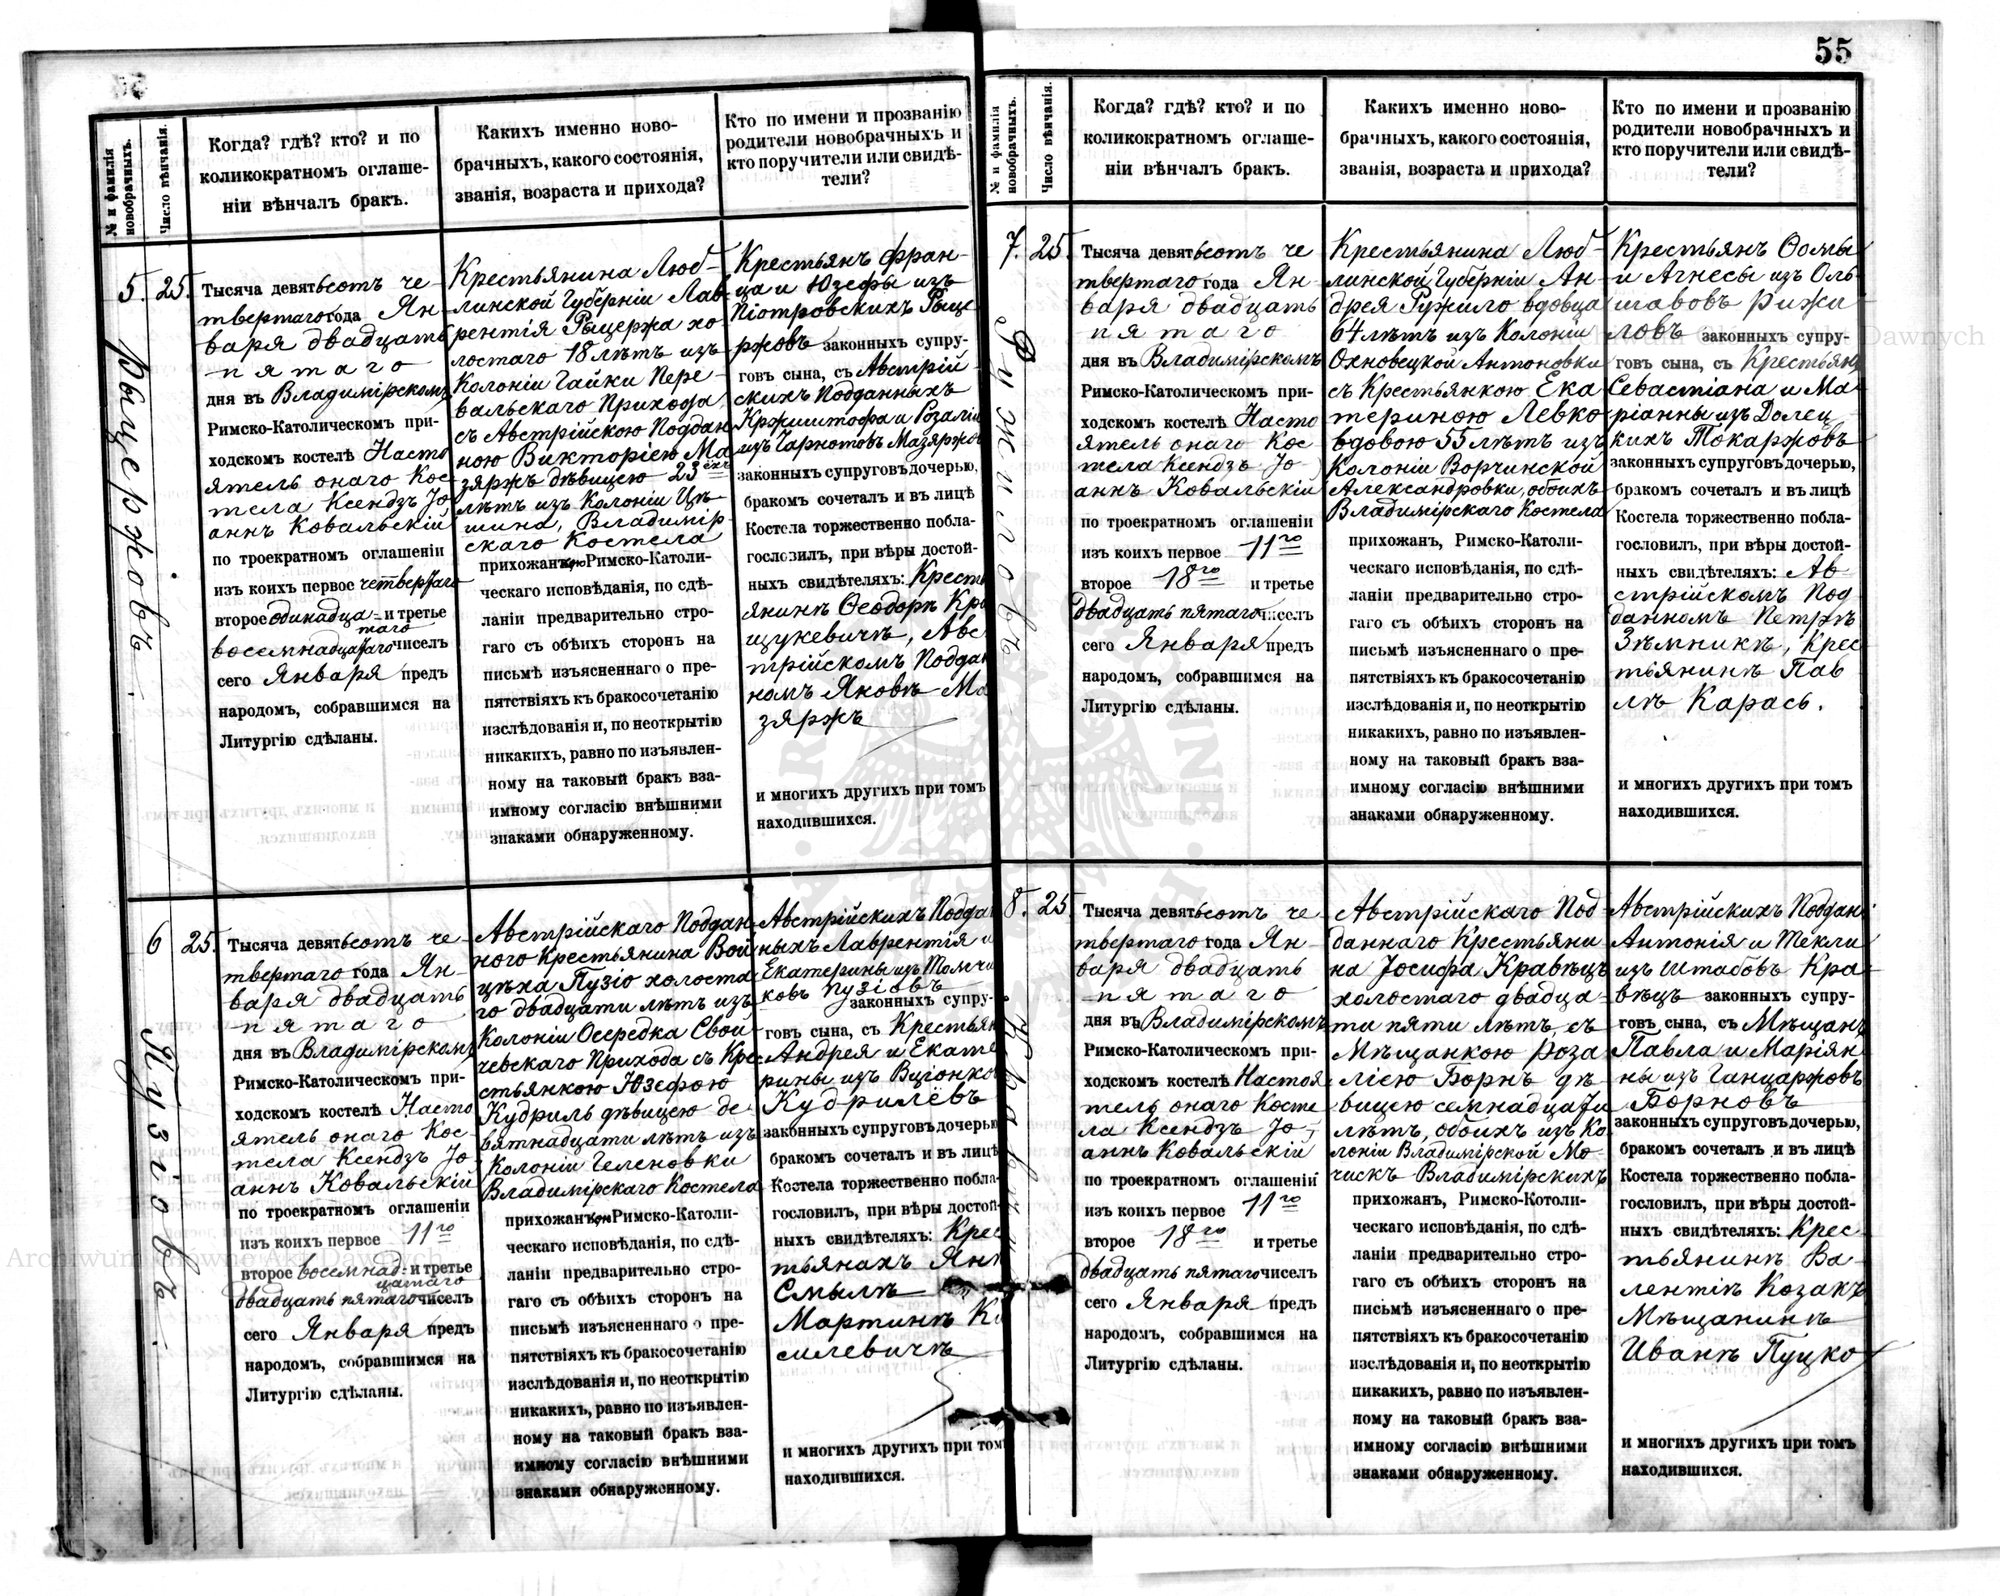 55
№ и фамилія новобрачныхъ.
Число вѣнчанія.
Когда? гдѣ? кто? и по
коликократномъ оглаше-
ніи вѣнчалъ бракъ.
Какихъ именно ново-
брачныхъ, какого состоянія,
званія, возраста и прихода?
Кто по имени и прозванію
родители новобрачныхъ и
кто поручители или свидѣ-
тели?
5.
Рыцержовъ.
25.
Тысяча девятьсотъ че-
твертаго года Ян-
варя двадцать
пятаго
дня въ Владимірскомъ
Римско-Католическомъ при-
ходскомъ костелѣ Насто
ятель онаго Кос-
тела Ксендзъ Іо-
аннъ Ковальскій
по троекратномъ оглашеніи
изъ коихъ первое четвертаго
второе одинадца- и третье
таго
восемнадцатаго чиселъ
сего Января предъ
народомъ, собравшимся на
Литургію сдѣланы.
Крестьянина Люб-
линской Губерніи Лав
рентія Рыцержа хо
лостаго 18 лѣтъ изъ
Колоніи Гайки Пере-
вальскаго Прихода
съ Австрійскою Поддан
ною Викторіею Ма
зяржъ дѣвицею 23ехъ
лѣтъ изъ Колоніи Цѣ
шина, Владимір-
скаго Костела
прихожанъ Римско-Католи-
ческаго исповѣданія, по сдѣ-
ланіи предварительно стро-
гаго съ обѣихъ сторонъ на
письмѣ изъясненнаго о пре-
пятствіяхъ къ бракосочетанію
изслѣдованія и, по неоткрытію
никакихъ, равно по изъявлен-
ному на таковый бракъ вза-
имному согласію внѣшними
знаками обнаруженному.
Крестьянъ Фран-
ца и Юзефы изъ
Піотровскихъ Рыце
ржовъ законныхъ супру-
говъ сына, съ Австрій
скихъ Подданныхъ
Кржиштофа и Розаліи
изъ Чарнотовъ Мазяржов
законныхъ супруговъ дочерью,
бракомъ сочеталъ и въ лицѣ
Костела торжественно побла-
гословилъ, при вѣры достой-
ныхъ свидѣтеляхъ: Кресть
янинѣ Ѳеодорѣ Кра
щукевичѣ, Авс
трійскомъ Поддан
номъ Яковѣ Ма
зяржъ
и многихъ другихъ при томъ
находившихся.
6
Пузіовъ.
25.
Тысяча девятьсотъ че-
твертаго года Ян-
варя двадцать
пятаго
дня въ Владимірскомъ
Римско-Католическомъ при-
ходскомъ костелѣ Насто
ятель онаго Кос-
тела Ксендзъ Іо-
аннъ Ковальскій
по троекратномъ оглашеніи
изъ коихъ первое 11го
второе восемнад- и третье
цатаго
двадцать пятаго чиселъ
сего Января предъ
народомъ, собравшимся на
Литургію сдѣланы.
Австрійскаго Поддан
ного Крестьянина Вой
цѣха Пузіо холоста
го двадцати лѣтъ изъ
Колоніи Осередка Свой
чевскаго Прихода съ Кре
стьянкою Юзефою
Кудриль дѣвицею де-
вятнадцати лѣтъ изъ
Колоніи Геленовки
Владимірскаго Костела
прихожанъ Римско-Католи-
ческаго исповѣданія, по сдѣ-
ланіи предварительно стро-
гаго съ обѣихъ сторонъ на
письмѣ изъясненнаго о пре-
пятствіяхъ къ бракосочетанію
изслѣдованія и, по неоткрытію
никакихъ, равно по изъявлен-
ному на таковый бракъ вза-
имному согласію внѣшними
знаками обнаруженному.
Австрійскихъ Поддан
ныхъ Лаврентія и
Екатерины изъ Томчи
ковъ Пузіовъ
законныхъ супру-
говъ сына, съ Крестьян
Андрея и Екате
рины изъ Вціонков
Кудрилевъ
законныхъ супруговъ дочерью
бракомъ сочеталъ и въ лицѣ
Костела торжественно побла-
гословилъ, при вѣры достой-
ныхъ свидѣтеляхъ: Крес
тьянахъ Янѣ
Смылѣ
Мартинѣ Ки
силевичѣ
и многихъ другихъ при томъ
находившихся.
№ и фамилія новобрачныхъ.
Число вѣнчанія.
Когда? гдѣ? кто? и по
коликократномъ оглаше-
ніи вѣнчалъ бракъ.
Какихъ именно ново-
брачныхъ, какого состоянія,
званія, возраста и прихода?
Кто по имени и прозванію
родители новобрачныхъ и
кто поручители или свидѣ-
тели?
7.
Ружиловъ
25.
Тысяча девятьсотъ че
твертаго года Ян-
варя двадцать
пятаго
дня въ Владимірскомъ
Римско-Католическомъ при-
ходскомъ костелѣ Насто
ятель онаго Кос
тела Ксендзъ Іо-
аннъ Ковальскій
по троекратномъ оглашеніи
изъ коихъ первое 11го
второе 18го и третье
двадцать пятаго чиселъ
сего Января предъ
народомъ, собравшимся на
Литургію сдѣланы.
Крестьянина Люб-
линской Губерніи Ан
дрея Ружило вдовца
64 лѣтъ изъ Колоніи
Охновецкой Антоновки
съ Крестьянкою Ека
териною Левко
вдовою 55 лѣтъ изъ
Колоніи Ворчинской
Александровки, обоихъ
Владимірскаго Костела
прихожанъ, Римско-Католи-
ческаго исповѣданія, по сдѣ-
ланіи предварительно стро-
гаго съ обѣихъ сторонъ на
письмѣ изъясненнаго о пре-
пятствіяхъ къ бракосочетанію
изслѣдованія и, по неоткрытію
никакихъ, равно по изъявлен-
ному на таковый бракъ вза-
имному согласію внѣшними
знаками обнаруженному.
Крестьянъ Ѳомы
и Агнесы изъ Оль
шавовъ Ружи
ловъ законныхъ супру-
говъ сына, съ Крестьян
Севастіана и Ма-
ріанны изъ Долец
кихъ Токаржовъ
законныхъ супруговъ дочерью,
бракомъ сочеталъ и въ лицѣ
Костела торжественно побла-
гословилъ, при вѣры достой-
ныхъ свидѣтеляхъ: Ав-
стрійскомъ Под
данномъ Петрѣ
Зѣмникѣ, Крес
тьянинѣ Пав
лѣ Карась.
и многихъ другихъ при томъ
находившихся.
8.
25.
Тысяча девятьсотъ че-
твертаго года Ян-
варя двадцать
пятаго
дня въ Владимірскомъ
Римско-Католическомъ при-
ходскомъ костелѣ Настоя
тель онаго Косте
ла Ксендзъ Іо-
аннъ Ковальскій
по троекратномъ оглашеніи
изъ коихъ первое 11го
второе 18го и третье
двадцать пятаго чиселъ
сего Января предъ
народомъ, собравшимся на
Литургію сдѣланы.
Австрійскаго Под
даннаго Крестьяни
на Іосифа Кравѣцъ
холостаго двадца-
ти пяти лѣтъ, съ
Мѣщанкою Роза
ліею Борнъ дѣ
вицею семнадцати
лѣтъ, обоихъ изъ Ко
лоніи Владимірской Мо-
чискъ Владимірскихъ
прихожанъ, Римско-Котоли-
ческаго исповѣданія, по сдѣ-
ланіи предварительно стро-
гаго съ обѣихъ сторонъ на
письмѣ изъясненнаго о пре-
пятствіяхъ къ бракосочетанію
изслѣдованія и, по неоткрытію
никакихъ, равно по изъявлен-
ному на таковый бракъ вза-
имному согласію внѣшними
знаками обнаруженному.
Австрійскихъ Поддан
Антонія и Текли
изъ Штабовъ Кра-
вѣцъ законныхъ супру-
говъ сына, съ Мѣщанъ
Павла и Маріян
ны изъ Ганцаржовъ
Борновъ
законныхъ супруговъ дочерью,
бракомъ сочеталъ и въ лицѣ
Костела торжественно побла-
гословилъ, при вѣры достой-
ныхъ свидѣтеляхъ: Крес-
тьянинѣ Ва-
лентіѣ Козакъ
Мѣщанинѣ
Иванѣ Пуцко
и многихъ другихъ при томъ
находившихся.